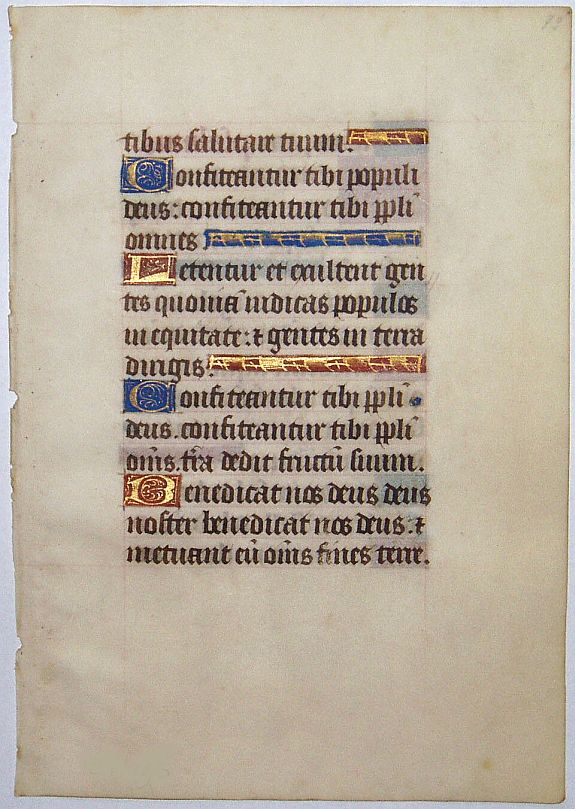 tibus salutare tuum.
Confiteantur tibi populi
deus: confiteantur tibi ppli
omnes
Letentur et exultent gen
tes quoniā iudicas populos
in equitate: ⁊ gentes in terra
dirigis.
Confiteantur tibi ppli
deus. confiteantur tibi ppli
om̄s. tr̄a dedit fructū suum.
Benedicat nos deus deus
noster benedicat nos deus: ⁊
metuant eū om̄s fines terre.